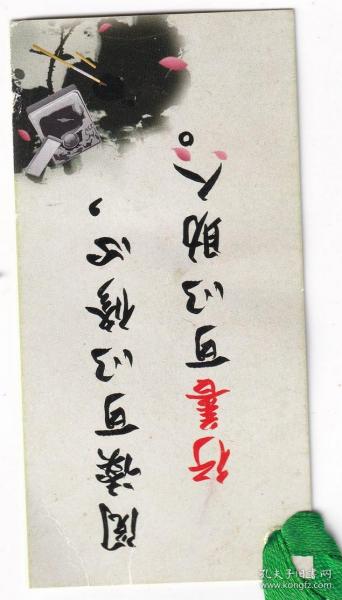 阅读可以修心，
行善可以助人。
孔夫子旧书网
www.kongfz.com